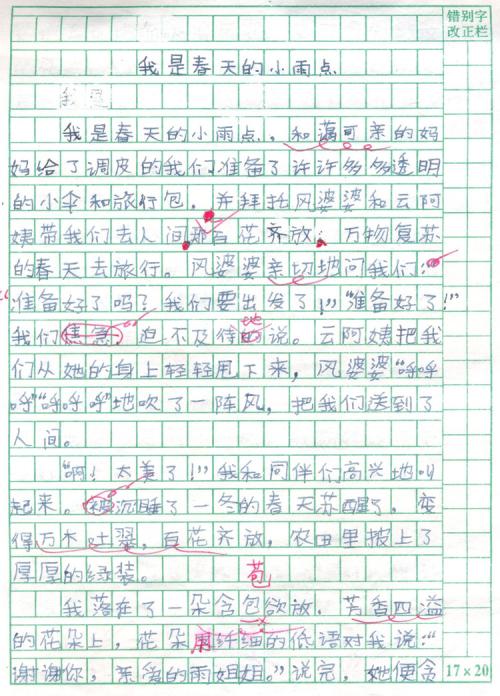 错别字
改正栏
我是春天的小雨点
我是春天的小雨点，和蔼可亲的妈
妈给了调皮的我们准备了许许多多透明
的小伞和旅行包，并拜托风婆婆和云阿
姨带我们去人间那百花齐放，万物复苏
的春天去旅行。风婆婆亲切地问我们：
“准备好了吗？我们要出发了！”“准备好了！”
我们焦急，迫不及待地说。云阿姨把我
们从她的身上轻轻甩下来，风婆婆“呼呼
呼”“呼呼呼”地吹了一阵风，把我们送到了
人间。
“啊！太美了！”我和同伴们高兴地叫
起来。被沉睡了一冬的春天苏醒了，变
得万木吐翠，百花齐放，农田里披上了
厚厚的绿装。
苞
我落在了一朵含包欲放、芳香四溢
的花朵上，花朵用纤细的低语对我说：“
谢谢你，亲爱的雨姐姐。”说完，她便贪
17×20